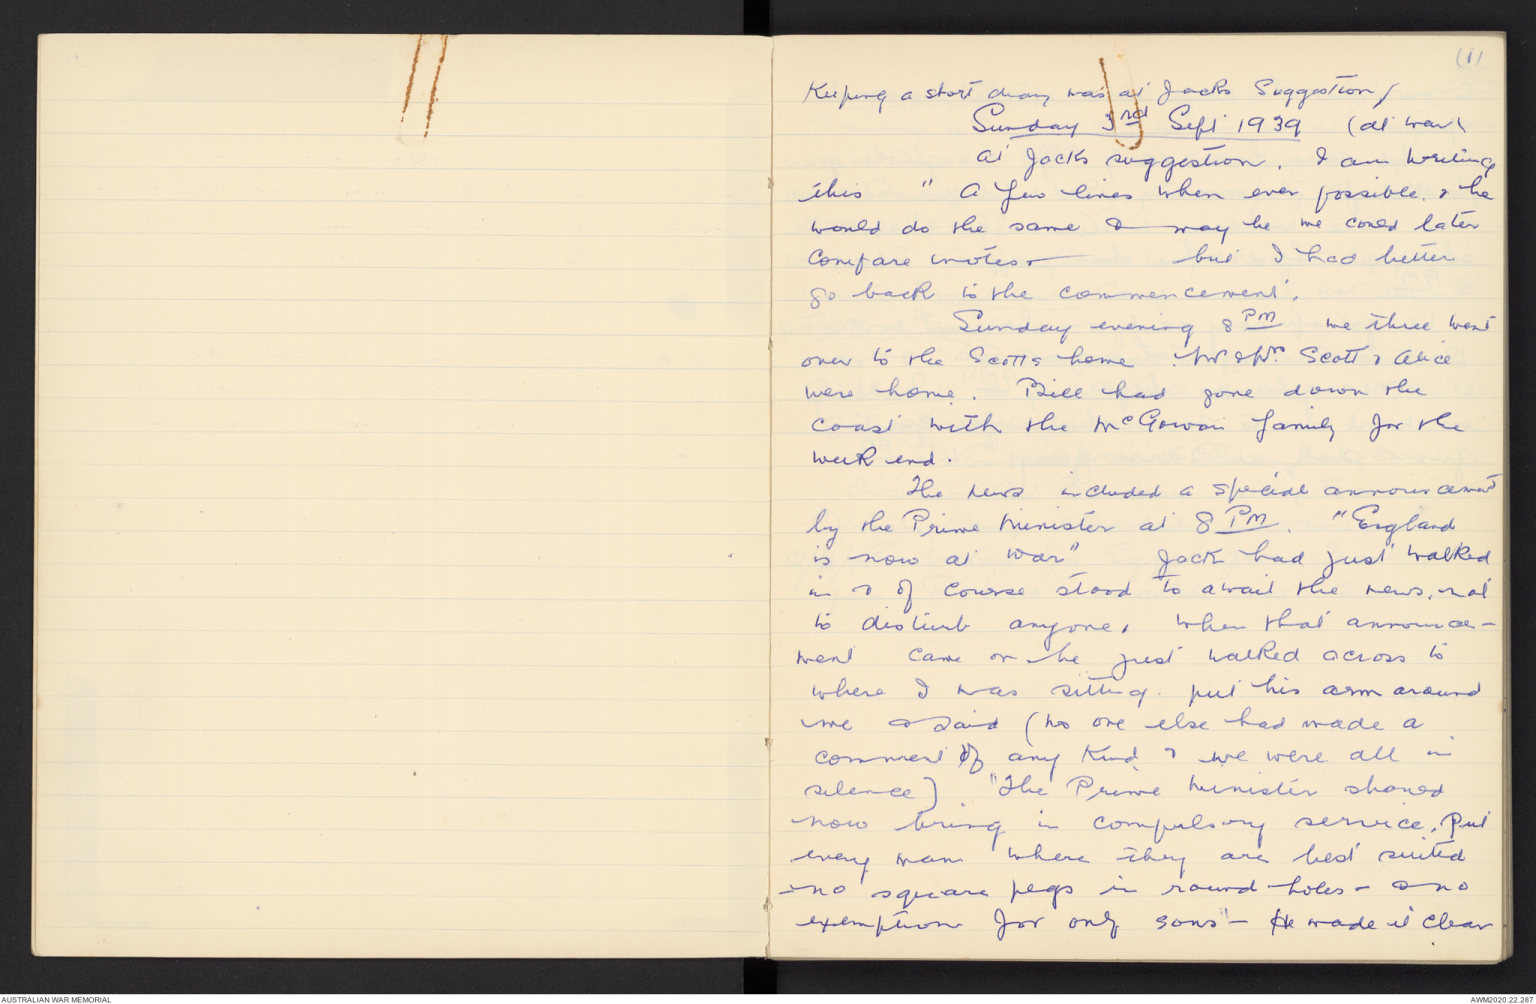 (1)
Keeping a short diary was at Jacks Suggestion/
Sunday 3rd Sept 1939 (at war)
At Jacks suggestion. I am writing
this " A few lines when ever possible. & he
would do the same & may be we could later
compare notes - but I had better
go back to the commencement.
Sunday evening 8 PM we three went
over to the Scotts home. Mr & Mrs Scott & Alice
were home. Bill had gone down the
coast with the McGowan family for the
week end.
The news included a special announcement
by the Prime Minister at 8 PM. "England
is now at war" Jack had just walked
in & of course stood to await the news, not
to disturb anyone. When that announce-
ment came on he just walked across to
where I was sitting. put his arm around
me & said (no one else had made a
comment of any kind & we were all in
silence) "The Prime Minister should
now bring in compulsory service. Put
every man where they are best suited
- no square pegs in round holes - & no
exemption for only sons" - He made it clear
AUSTRALIAN WAR MEMORIAL
AWM2020.22.287